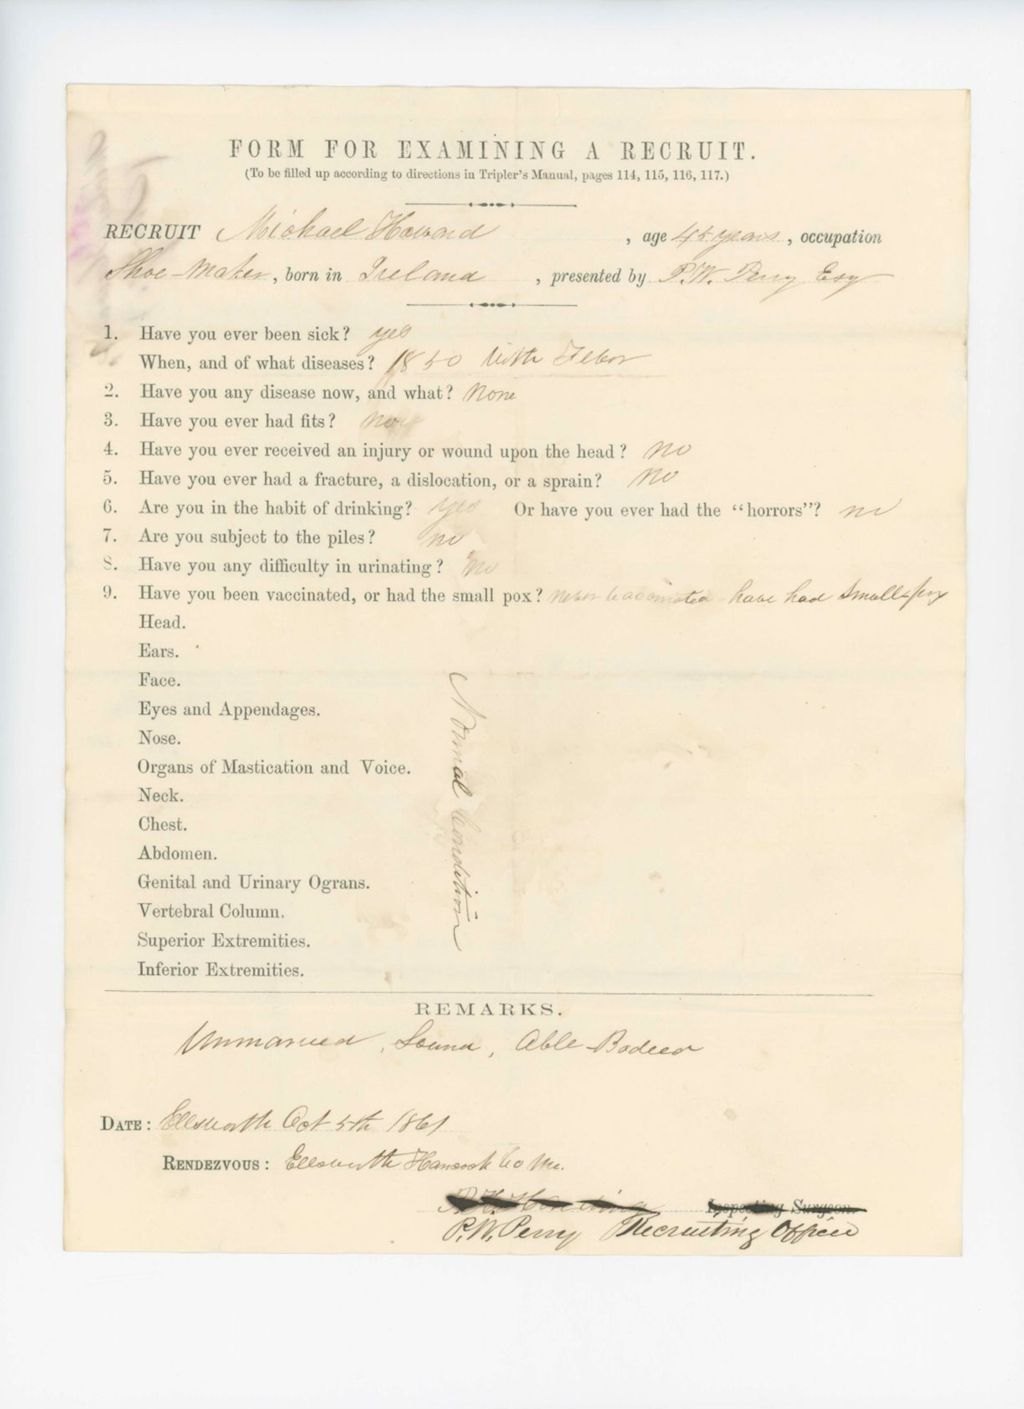 FORM FOR EXAMINING A RECRUIT.
(To be filled up according to directions in Tripler's Manual, pages 114, 115, 116, 117.)
RECRUIT Michael Howard, age 45 years, occupation
Shoe-Maker, born in Ireland, presented by P.W. Perry Esq
1. Have you ever been sick? yes
When, and of what diseases? 1850 with
2. Have you any disease now, and what? None
3. Have you ever had fits? No
4. Have you ever received an injury or wound upon the head? No
5. Have you ever had a fracture, a dislocation, or a sprain? No
6. Are you in the habit of drinking? yes Or have you ever had the "horrors"? no
7. Are you subject to the piles? no
8. Have you any difficulty in urinating? No
9. Have you been vaccinated, or had the small pox? never vaccinated - have had Small-pox
Head.
Ears.
Face.
Eyes and Appendages.
Nose.
Organs of Mastication and Voice.
Neck.
Chest.
Abdomen.
Genital and Urinary Ograns.
Vertebral Column.
Superior Extremities.
Inferior Extremities.
Normal Condition
REMARKS.
Unmarried, Sound, Able-Bodied
DATE: Ellsworth Oct 5th 1861
RENDEZVOUS: Ellsworth Hancock Co Me.
Inspecting Surgeon.
P.W. Perry Recruiting Officer